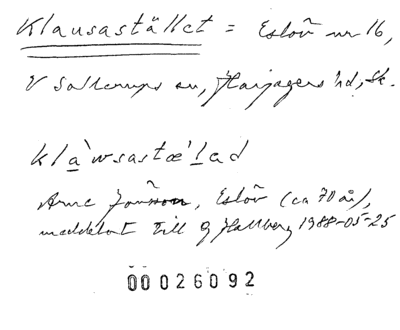 Klausastället = Eslöv nr 16,
V Sallerups sn, Harjagers hd, Sk.
kla`wsastæ`lad
Arne Jönsson, Eslöv (ca 70 år),
meddelat till G Hallberg 1988-05-25
00026092